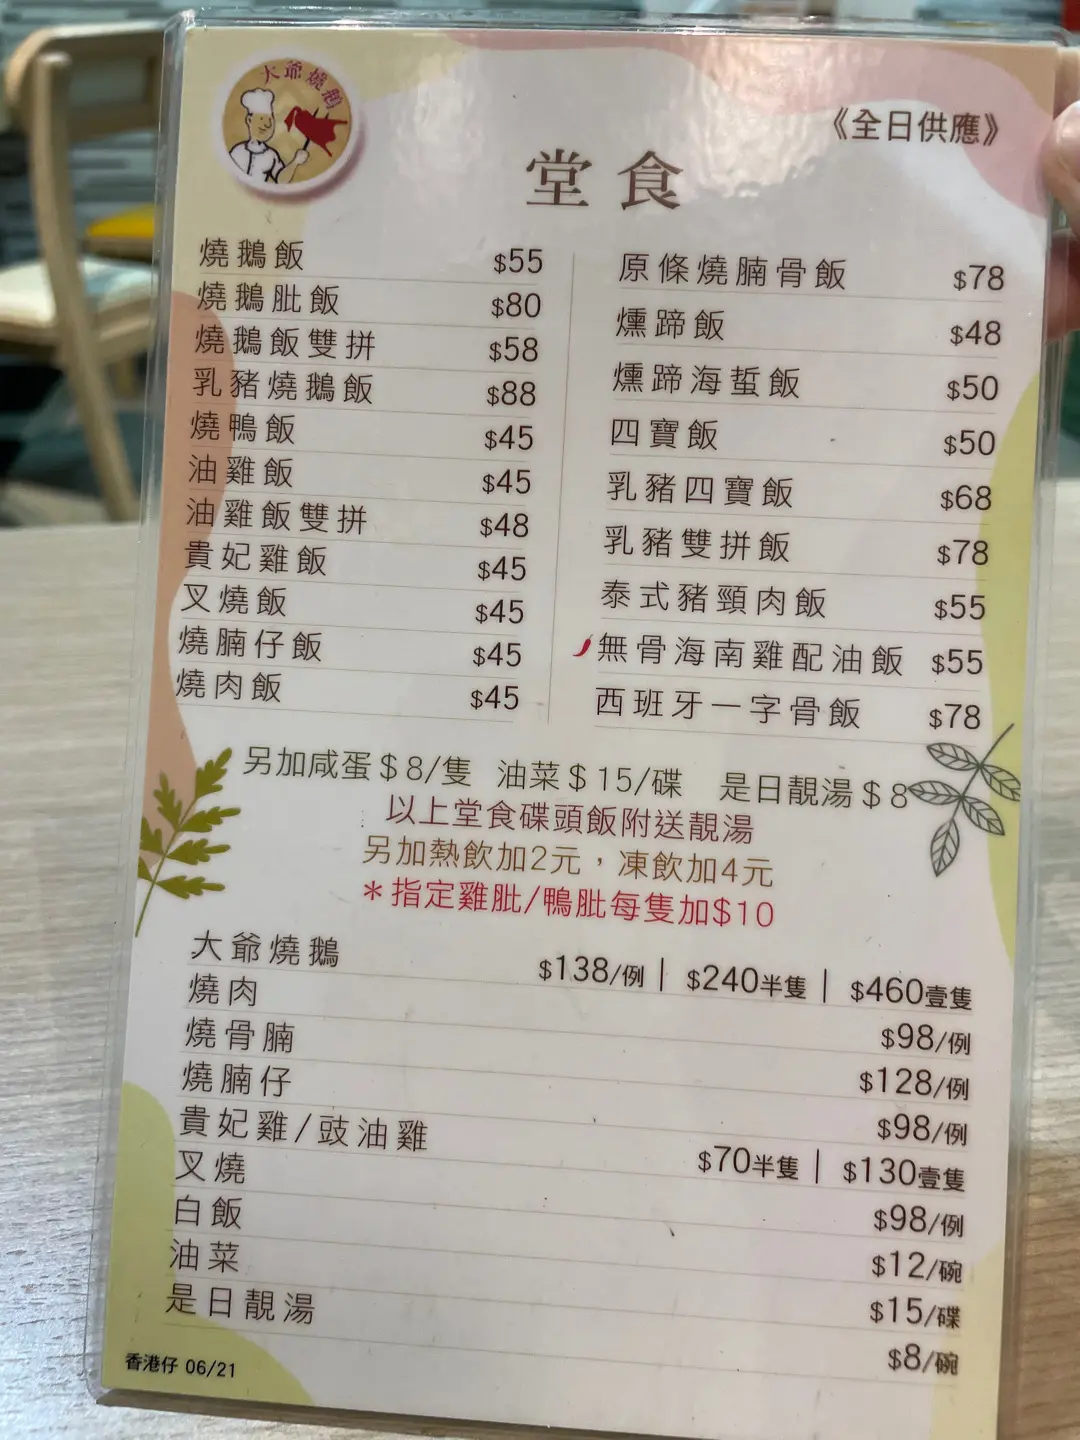 大爺燒鵝
《全日供應》
堂食
燒鵝飯 $55
燒鵝肶飯 $80
燒鵝飯雙拼 $58
乳豬燒鵝飯 $88
燒鴨飯 $45
油雞飯 $45
油雞飯雙拼 $48
貴妃雞飯 $45
叉燒飯 $45
燒腩仔飯 $45
燒肉飯 $45
原條燒腩骨飯 $78
燻蹄飯 $48
燻蹄海蜇飯 $50
四寶飯 $50
乳豬四寶飯 $68
乳豬雙拼飯 $78
泰式豬頸肉飯 $55
無骨海南雞配油飯 $55
西班牙一字骨飯 $78
另加咸蛋$8/隻 油菜$15/碟 是日靚湯$8
以上堂食碟頭飯附送靚湯
另加熱飲加2元，凍飲加4元
*指定雞肶/鴨肶每隻加$10
大爺燒鵝 $138/例 | $240半隻 | $460壹隻
燒肉 $98/例
燒骨腩 $128/例
燒腩仔 $98/例
貴妃雞/豉油雞 $70半隻 | $130壹隻
叉燒 $98/例
白飯 $12/碗
油菜 $15/碟
是日靚湯 $8/碗
香港仔 06/21